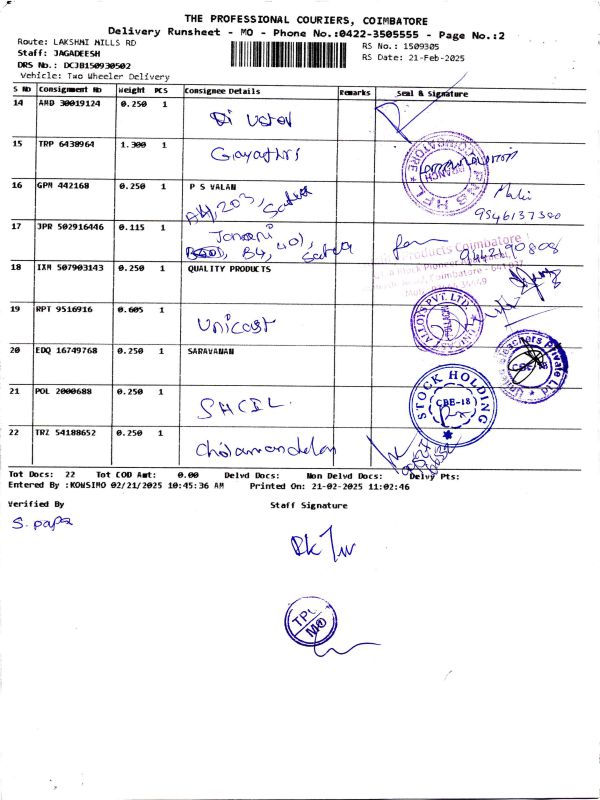 THE PROFESSIONAL COURIERS, COIMBATORE
Delivery Runsheet - MO - Phone No.:0422-3505555 - Page No.:2
Route: LAKSHMI MILLS RD
RS No.: 1509305
Staff: JAGADEESH
RS Date: 21-Feb-2025
DRS No.: DCJB150930502
Vehicle: Two Wheeler Delivery
S No Consignment No Weight PCS Consignee Details Remarks Seal & Signature
14 AMD 30019124 0.250 1
15 TRP 6438964 1.300 1 Gayathri
16 GPM 442168 0.250 1 P S VALAN
A4, 203,
9546137300
17 JPR 502916446 0.115 1 Janani
B4, 401,
9442190808
18 IXM 507903143 0.250 1 QUALITY PRODUCTS
Products Coimbatore
Coimbatore - 641 037
19 RPT 9516916 0.605 1 Unicast
ALLOYS PVT. LTD.
20 EDQ 16749768 0.250 1 SARAVANAN
Bleachers Private Ltd
21 POL 2000688 0.250 1 SHCIL.
STOCK HOLDING
CBE-18
22 TRZ 54188652 0.250 1 Cholamandalam
Tot Docs: 22 Tot COD Amt: 0.00 Delvd Docs: Non Delvd Docs: Delvy Pts:
Entered By :KOWSIMO 02/21/2025 10:45:36 AM Printed On: 21-02-2025 11:02:46
Verified By Staff Signature
S. papa
TPC
MO